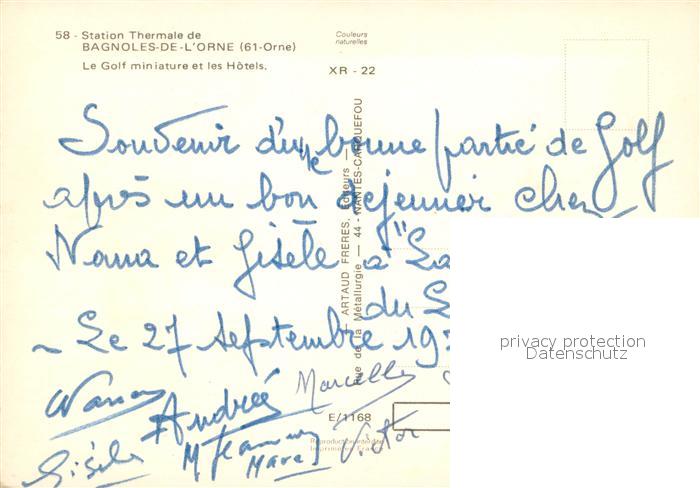 58 - Station Thermale de
BAGNOLES-DE-L'ORNE (61-Orne)
Le Golf miniature et les Hôtels.
Couleurs
naturelles
XR - 22
Souvenir d'une bonne partie de Golf
après un bon déjeuner chez
Nana et Gisèle à "La
du L
- Le 27 Septembre 19
ARTAUD FRERES, Editeurs —
Rue de la Métallurgie — 44 - NANTES-CARQUEFOU
privacy protection
Datenschutz
Marcelle
Andrée
Victor
Gisèle
E/1168
Reproduction interdite
Imprimé en France